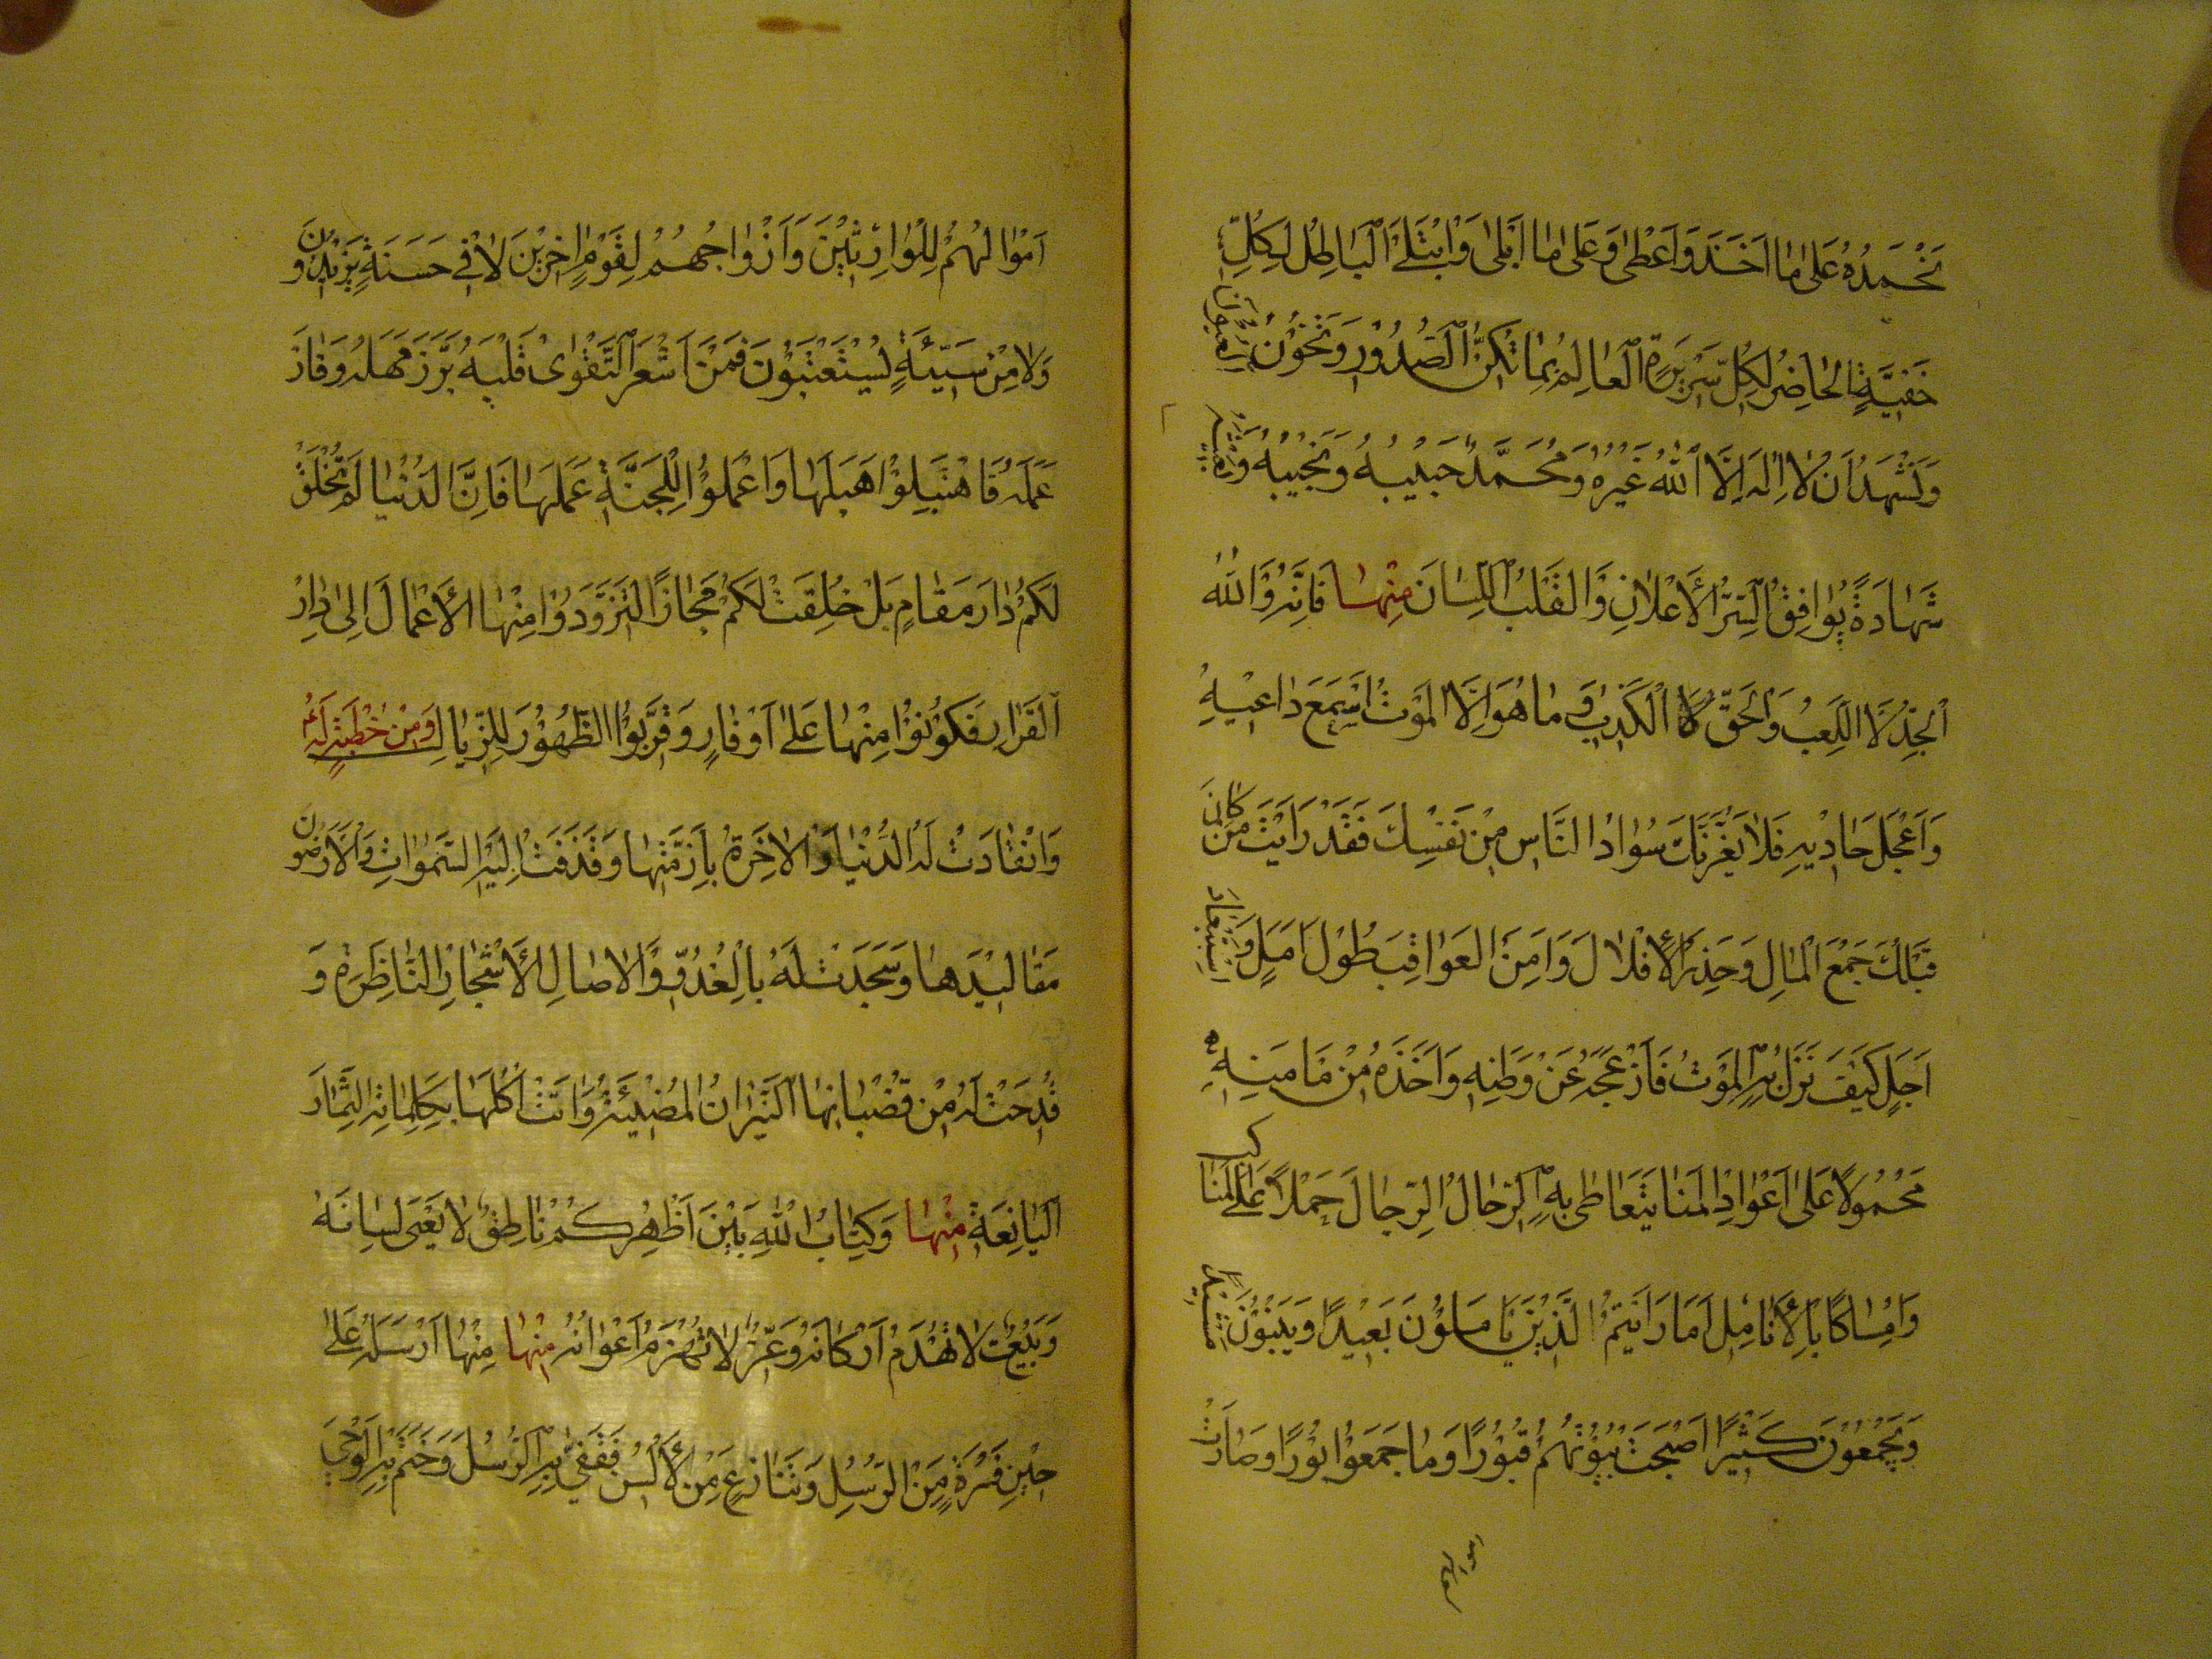 نَحْمَدُهُ عَلىٰ مٰا اَخَذَ وَاَعْطىٰ وَعَلىٰ مٰا اَبْلىٰ وَابْتَلىٰ اَلْبٰاطِنُ لِكُلِّ
خَفِيَّةٍ الْحٰاضِرُ لِكُلِّ سَرِيْرَةٍ اَلْعٰالِمُ بِمٰا تُكِنُّ الصُّدُوْرُ وَتَخُوْنُ الْعُيُوْنُ
وَنَشْهَدُ اَنْ لاٰ اِلٰهَ اِلَّا اللهُ غَيْرُهُ وَمُحَمَّدٌ حَبِيْبُهُ وَنَجِيْبُهُ وَبَعِيْثُهُ
شَهٰادَةً يُوٰافِقُ السِّرُّ الْأَعْلاٰنِ وَالْقَلْبُ اللِّسٰانَ مِنْهٰا فَاِنَّهُ وَاللهُ
الْجِدُّ لَا اللَّعِبُ وَالْحَقُّ لَا الْكَذِبُ وَمٰا هُوَ اِلَّا الْمَوْتُ اَسْمَعَ دٰاعِيْهِ
وَاَعْجَلَ حٰادِيْهِ فَلاٰ يَغُرَّنَّكَ سَوٰادُ النَّاسِ مِنْ نَفْسِكَ فَقَدْ رَاَيْتَ مَنْ كٰانَ
قَبْلَكَ جَمَعَ الْمٰالَ وَحَذِرَ الْأِقْلاٰلَ وَاَمِنَ الْعَوٰاقِبَ طُوْلَ اَمَلٍ وَاسْتِبْعٰادَ
اَجَلٍ كَيْفَ نَزَلَ بِهِ الْمَوْتُ فَاَزْعَجَهُ عَنْ وَطَنِهِ وَاَخَذَهُ مِنْ مَأْمَنِهِ
مَحْمُوْلاً عَلىٰ اَعْوٰادِ الْمَنٰايٰا يَتَعٰاطىٰ بِهِ الرِّجٰالُ الرِّجٰالَ حَمْلاً عَلَى الْمَنٰاكِبِ
وَاِمْسٰاكًا بِالْأَنٰامِلِ اَمٰا رَاَيْتُمْ الَّذِيْنَ يَأْمَلُوْنَ بَعِيْدًا وَيَبْنُوْنَ مَشِيْدًا
وَيَجْمَعُوْنَ كَثِيْرًا اَصْبَحَتْ بُيُوْتُهُمْ قُبُوْرًا وَمٰا جَمَعُوْا بُوْرًا وَصٰارَتْ
اَمْوٰالُهُمْ لِلْوٰارِثِيْنَ وَاَزْوٰاجُهُمْ لِقَوْمٍ اٰخَرِيْنَ لاٰ فِيْ حَسَنَةٍ يَزِيْدُوْنَ
وَلاٰ مِنْ سَيِّئَةٍ يُسْتَعْتَبُوْنَ فَمَنْ اَشْعَرَ التَّقْوٰى قَلْبَهُ بَرَّزَ مَهَلُهُ وَفٰازَ
عَمَلُهُ فَاهْتَبِلُوْا هَبَلَهٰا وَاعْمَلُوْا لِلْجَنَّةِ عَمَلَهٰا فَاِنَّ الدُّنْيٰا لَمْ تُخْلَقْ
لَكُمْ دٰارَ مَقٰامٍ بَلْ خُلِقَتْ لَكُمْ مَجٰازًا لِتَزَوَّدُوْا مِنْهٰا الْأَعْمٰالَ اِلىٰ دٰارِ
الْقَرٰارِ فَكُوْنُوْا مِنْهٰا عَلىٰ اَوْفٰازٍ وَقَرِّبُوا الظُّهُوْرَ لِلزِّيٰالِ وَمِنْ خُطْبَةٍ لَهُ
وَانْقٰادَتْ لَهُ الدُّنْيٰا وَالْاٰخِرَةُ بِاَزِمَّتِهٰا وَقَذَفَتْ اِلَيْهِ السَّمٰوٰاتُ وَالْاَرَضُوْنَ
مَقٰالِيْدَهٰا وَسَجَدَتْ لَهُ بِالْغُدُوِّ وَالْاٰصٰالِ الْأَشْجٰارُ النّٰاظِرَةُ وَ
قَدَحَتْ لَهُ مِنْ قُضْبٰانِهَا النِّيْرٰانُ الْمُضِيْئَةُ وَاٰتَتْ اُكُلَهٰا بِكَلِمٰاتِهِ الثِّمٰارُ
الْيٰانِعَةُ مِنْهٰا وَكِتٰابُ اللهِ بَيْنَ اَظْهُرِكُمْ نٰاطِقٌ لاٰ يَعْيىٰ لِسٰانُهُ
وَبَيْتٌ لاٰ تُهْدَمُ اَرْكٰانُهُ وَعِزٌّ لاٰ تُهْزَمُ اَعْوٰانُهُ مِنْهٰا مِنْهٰا اَرْسَلَهُ عَلىٰ
حِيْنِ فَتْرَةٍ مِنَ الرُّسُلِ وَتَنٰازُعٍ مِنَ الْأَلْسُنِ فَقَفّٰى بِهِ الرُّسُلَ وَخَتَمَ بِهِ الْوَحْيَ